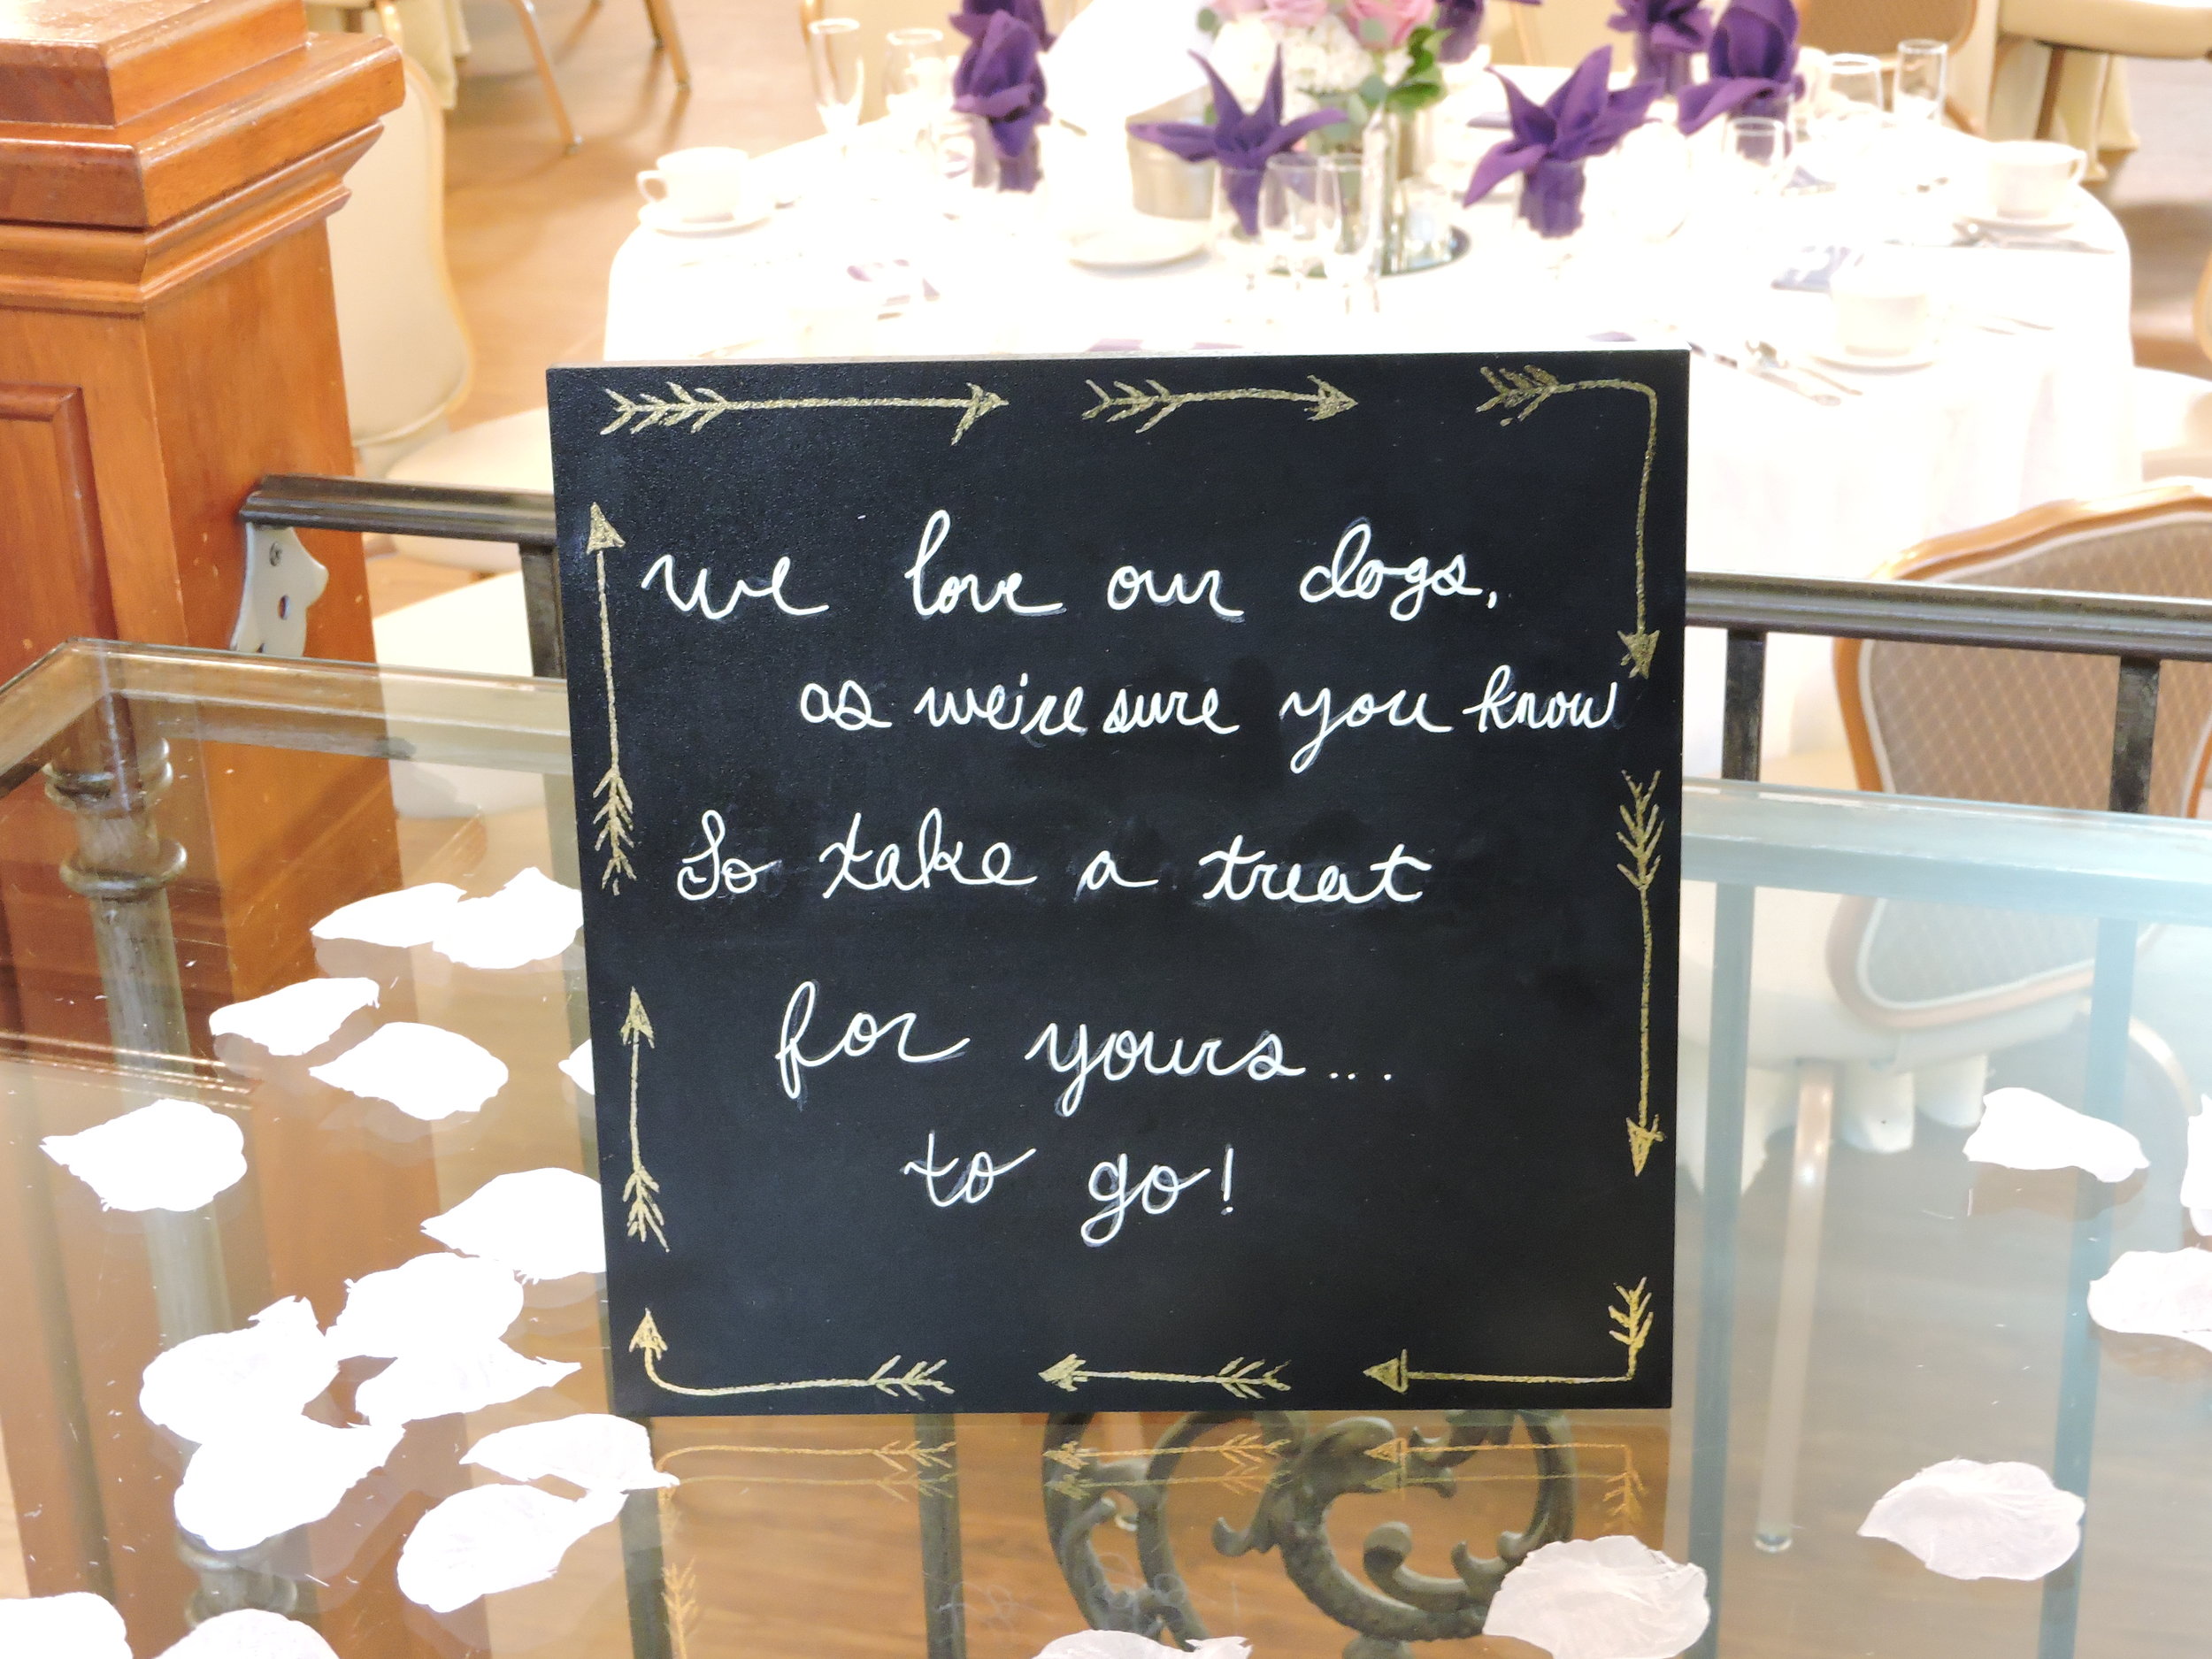 We love our dogs,
as we're sure you know
So take a treat
for yours...
to go!